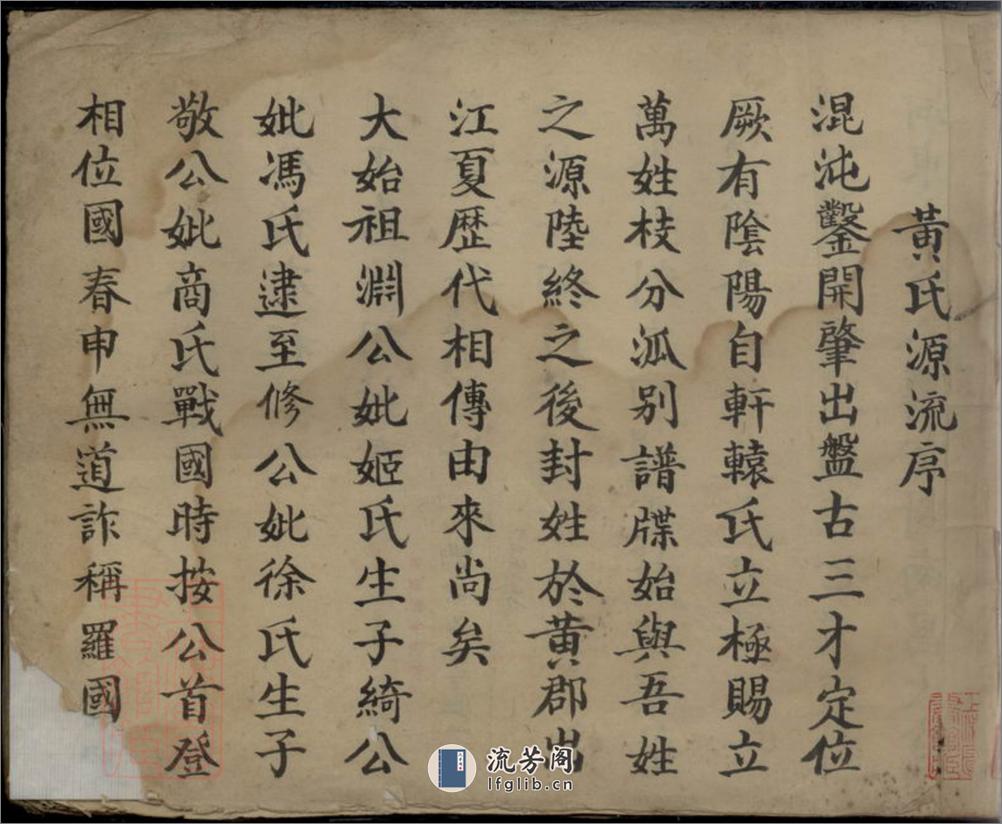 黃氏源流序
混沌鑿開肇出盤古三才定位
厥有陰陽自軒轅氏立極賜立
萬姓枝分泒别譜牒始與吾姓
之源陸終之後封姓於黃郡出
江夏歴代相傳由來尚矣
大始祖淵公妣姬氏生子綺公
妣馮氏逮至修公妣徐氏生子
敬公妣商氏戰國時按公首登
相位國春申無道詐稱羅國
流芳阁
lfglib.cn